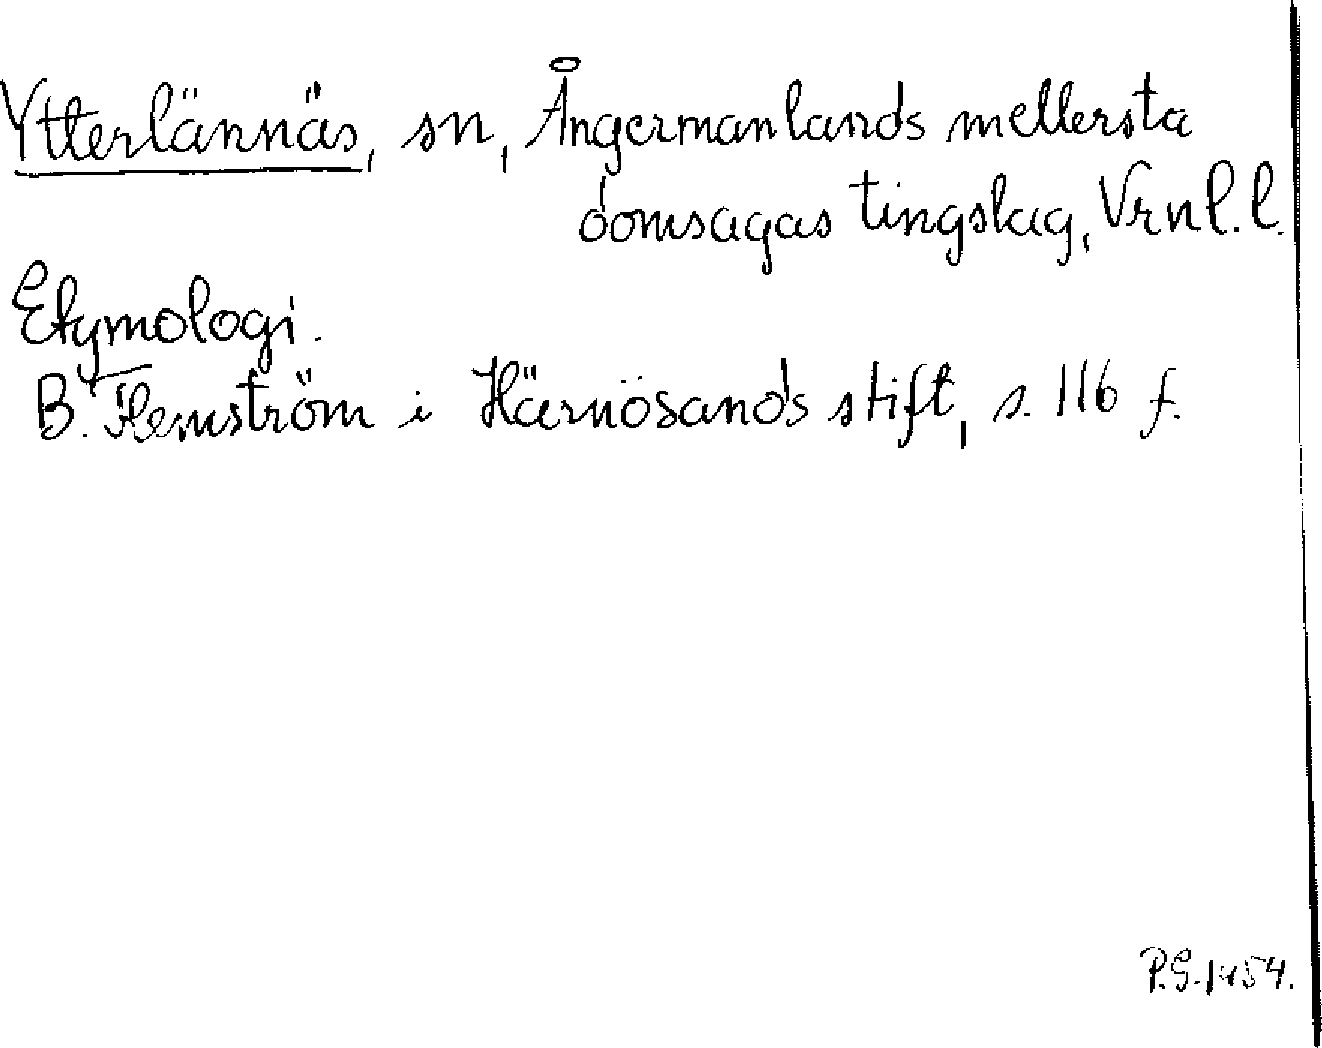 Ytterlännäs, sn, Ångermanlands mellersta
domsagas tingslag, Vrnl. l.
Etymologi.
B. Flemström i Härnösands stift, s. 116 f.
P.G. 1954.